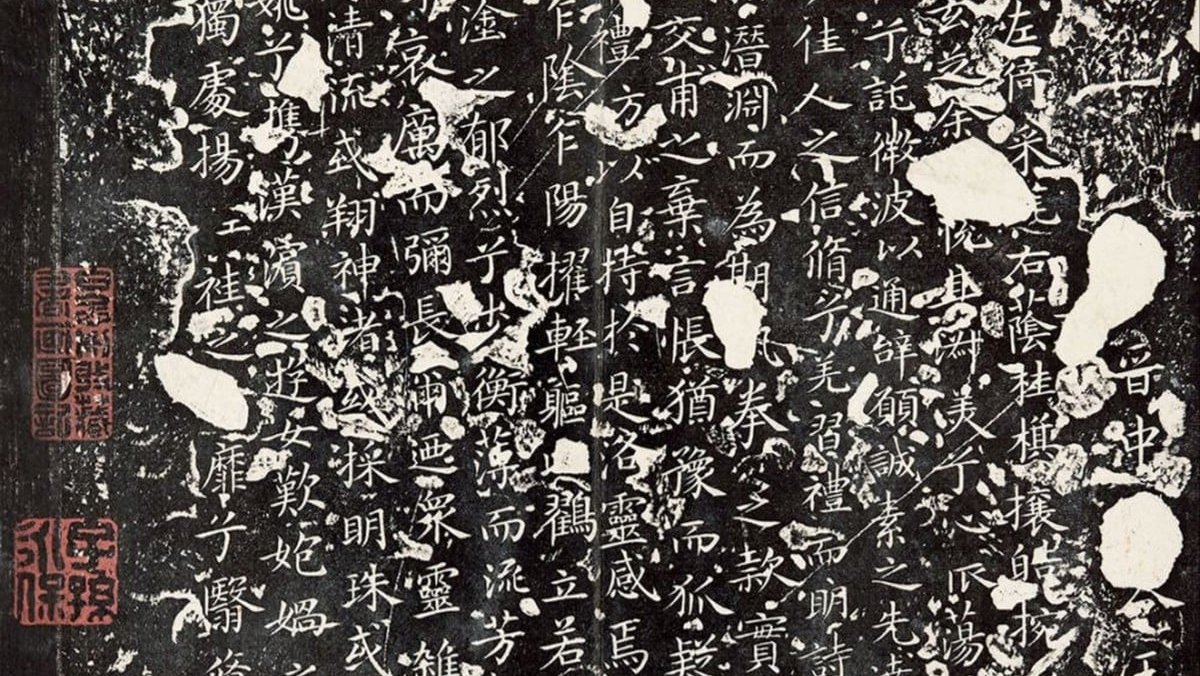 晉中令
左倚采旄右蔭桂棋攘皓捥
玄之余悅其淑美兮心蕩
兮託微波以通辞願誠素之先
佳人之信脩兮羌習禮而明詩
潛淵而為期執拳之款實
交甫之棄言悵猶豫而狐疑
禮方以自持於是洛靈感焉
乍陰乍陽擢輕軀以鶴立若
塗之郁烈兮步衡薄而流芳
哀厲而彌長爾迺眾靈雜
清流或翔神渚或採明珠或
兮攜漢濱之遊女歎媧之
獨處揚袿之靡兮翳脩
子孫永保